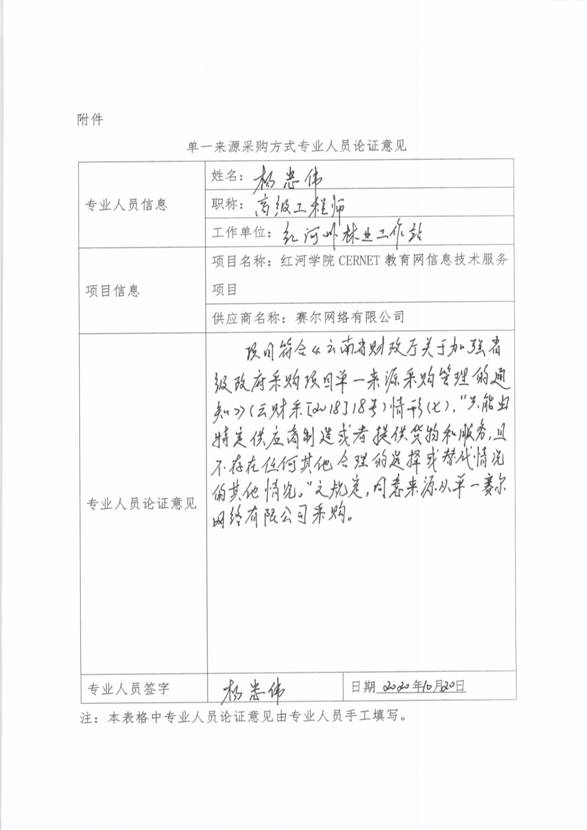 附件
单一来源采购方式专业人员论证意见
专业人员信息
姓名：杨忠伟
职称：高级工程师
工作单位：红河州林业工作站
项目信息
项目名称：红河学院 CERNET 教育网信息技术服务
项目
供应商名称：赛尔网络有限公司
专业人员论证意见
项目符合《云南省财政厅关于加强省
级政府采购项目单一来源采购管理的通
知》（云财采[2018]18号）情形（七），“只能由
特定供应商制造或者提供货物和服务，且
不存在任何其他合理的选择或替代情况
的其他情况。”之规定，同意来源从单一赛尔
网络有限公司采购。
专业人员签字
杨忠伟
日期 2020年10月20日
注：本表格中专业人员论证意见由专业人员手工填写。